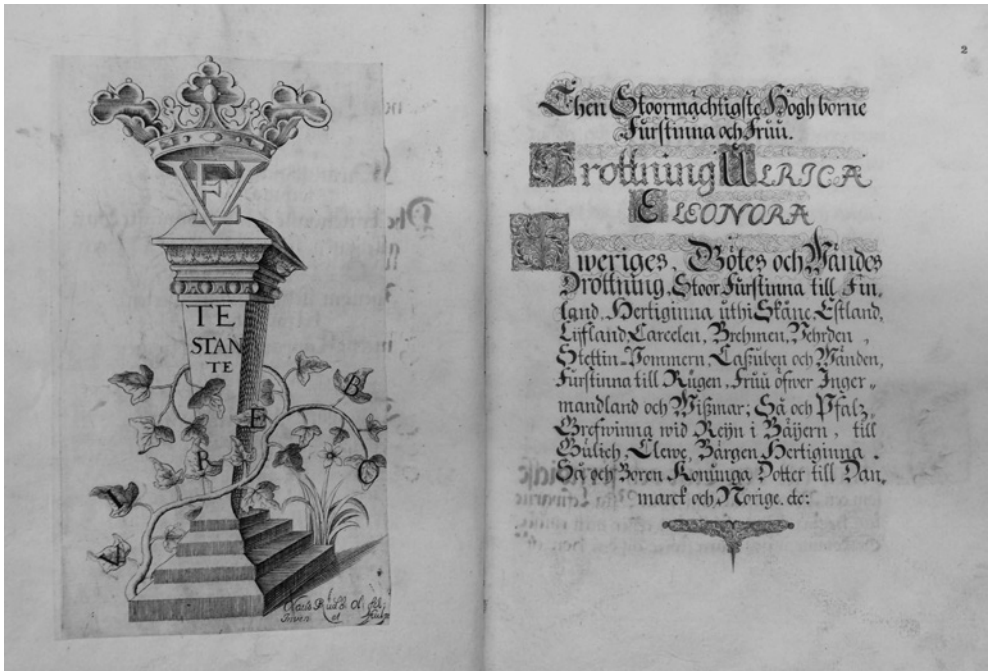 TE
STAN
TE
B
E
O
R
L
A
Olaus Rudb. Ol. fil.
Inven. et Sculp.
2
Then Stoormächtigste Högh borne
Furstinna och Fruu.
Drottning ULRICA
ELEONORA
Sweriges, Götes och Wändes
Drottning, Stoor Furstinna till Fin,
land, Hertiginna uthi Skåne, Estland,
Lijfland, Careelen, Brehmen, Vehrden,
Stettin-Pommern, Caßuben och Wänden,
Furstinna till Rügen, Fruu öfwer Inger,,
mandland och Wißmar; Så och Pfalz,
Grefwinna wid Reijn i Bäijern, till
Gülich, Clewe, Bärgen Hertiginna.
Så och Boren Konunga Dotter till Dan,
marck och Norige. etc: